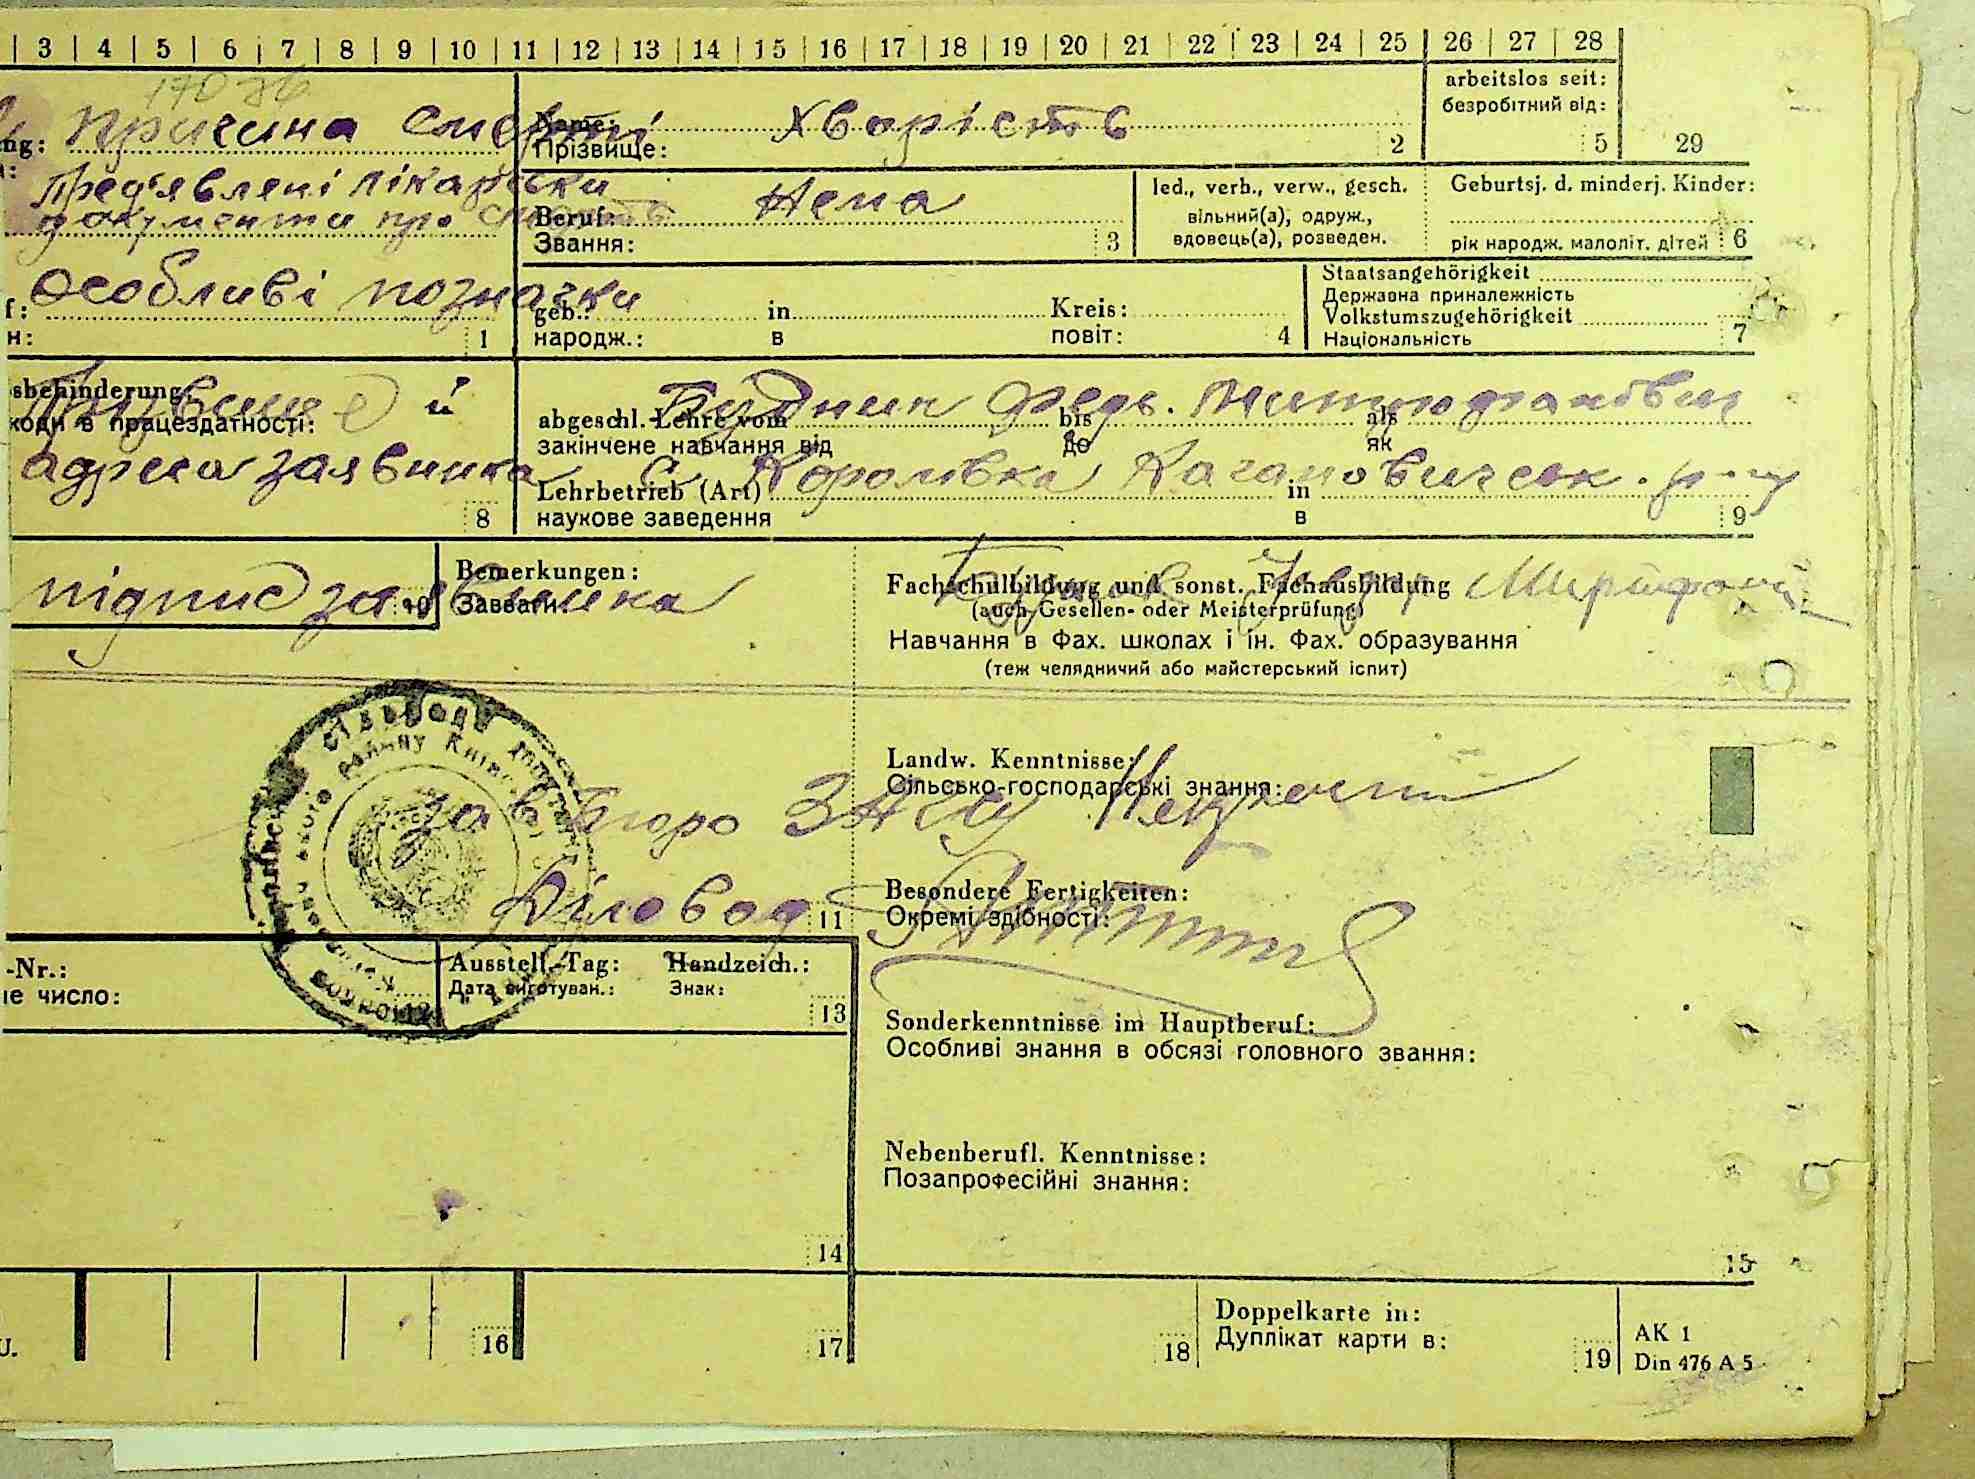 3 | 4 | 5 | 6 | 7 | 8 | 9 | 10 | 11 | 12 | 13 | 14 | 15 | 16 | 17 | 18 | 19 | 20 | 21 | 22 | 23 | 24 | 25 | 26 | 27 | 28
arbeitslos seit:
безробітний від:
5
29
Причина смерті
Хворість
Name:
Прізвище:
2
Пред'явлені лікарськи
документи про
Нема
Beruf:
Звання:
3
led., verh., verw., gesch.
вільний(а), одруж.,
вдовець(а), розведен.
Geburtsj. d. minderj. Kinder:
рік народж. малоліт. дітей
6
Особливі позначки
1
geb.: in Kreis:
народж.: в повіт:
4
Staatsangehörigkeit
Державна приналежність
Volkstumszugehörigkeit
Національність
7
sbehinderung:
коди в працездатності:
Прізвище й
адреса заявника
8
Будник Федь. Митрофанович
abgeschl. Lehre vom bis als
закінчене навчання від до як
с. Королівка Кагановичськ. р-ну
Lehrbetrieb (Art) in
наукове заведення в
9
підпис заявника
10
Bemerkungen:
Завваги:
Fachschulbildung und sonst. Fachausbildung
(auch Gesellen- oder Meisterprüfung)
Навчання в Фах. школах і ін. Фах. образування
(теж челядничий або майстерський іспит)
Landw. Kenntnisse:
Сільсько-господарські знання:
зав Бюро ЗАГСу
Діловод
11
Besondere Fertigkeiten:
Окремі здібності:
-Nr.:
не число:
12
Ausstell.-Tag: Handzeich.:
Дата виготуван.: Знак:
13
Sonderkenntnisse im Hauptberuf:
Особливі знання в обсязі головного звання:
Nebenberufl. Kenntnisse:
Позапрофесійні знання:
14
15
16
17
18
Doppelkarte in:
Дуплікат карти в:
19
AK 1
Din 476 A 5